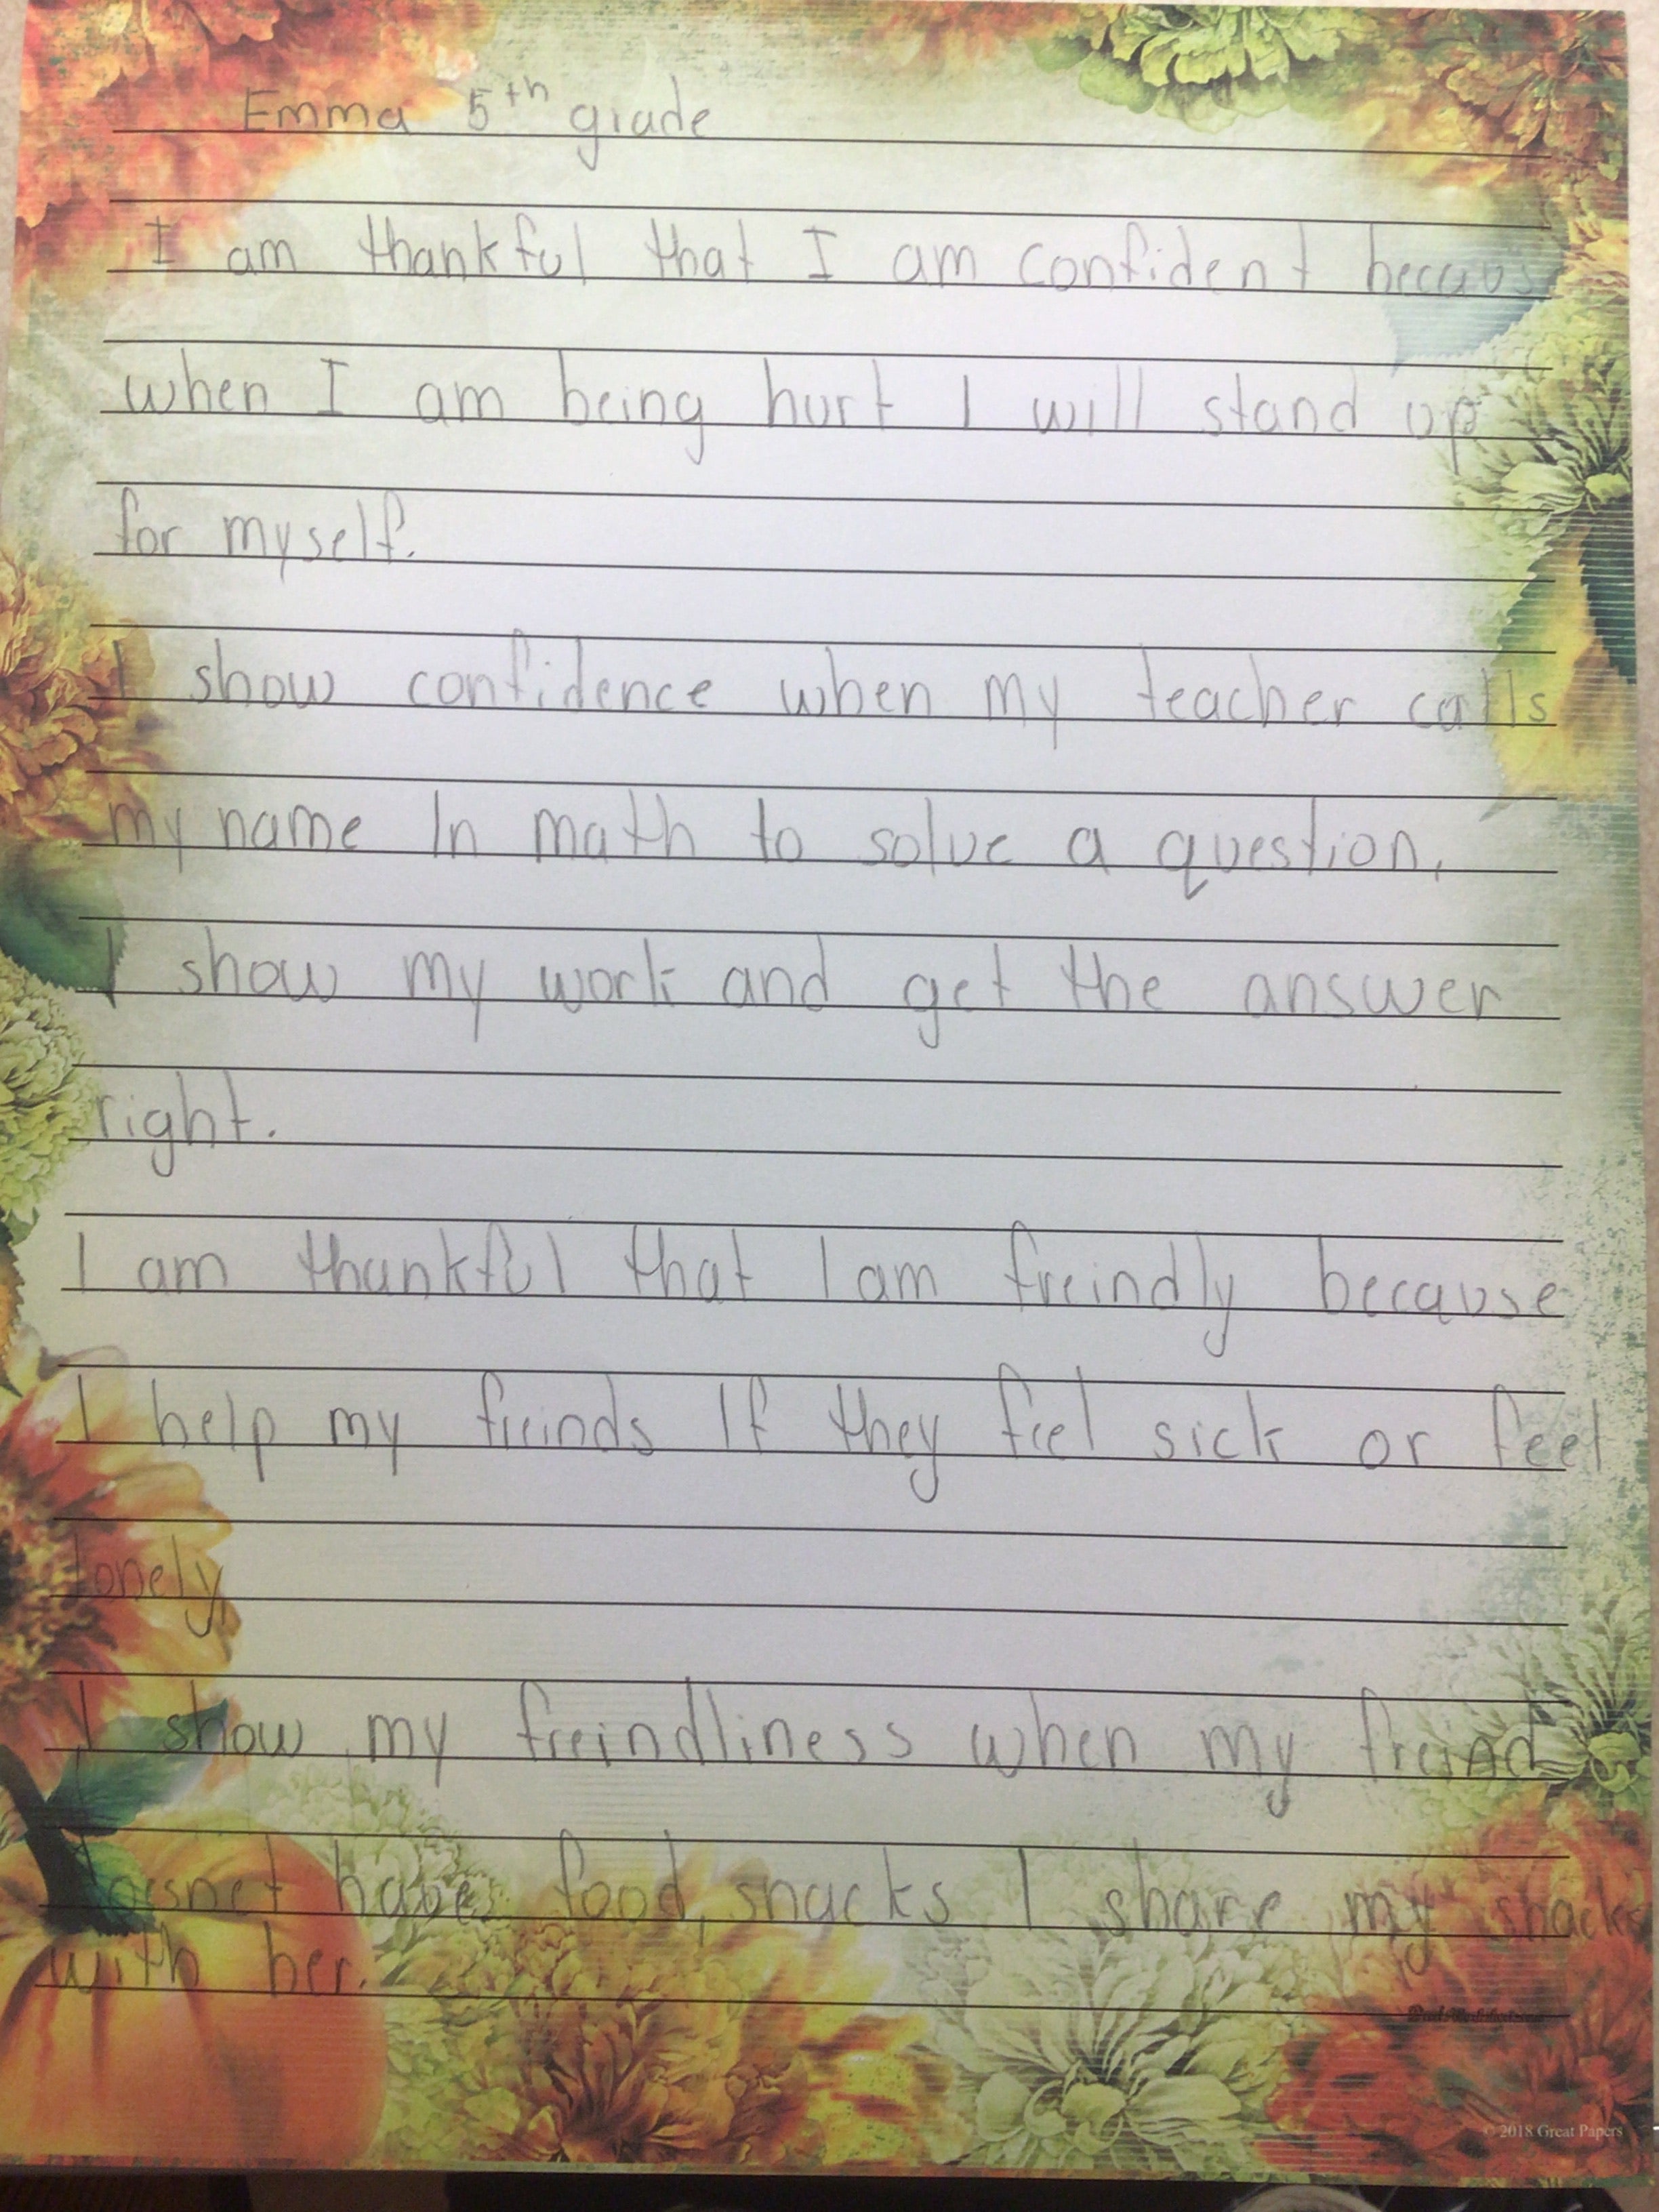 Emma 5th grade
I am thankful that I am confident becaus
when I am being hurt I will stand up
for myself.
I show confidence when my teacher calls
my name In math to solve a question,
I show my work and get the answer
right.
I am thankful that I am freindly because
I help my freinds If they feel sick or feel
lonely,
I show my freindliness when my freind
doesnet have food, snacks I share my snacks
with her.
© 2018 Great Papers